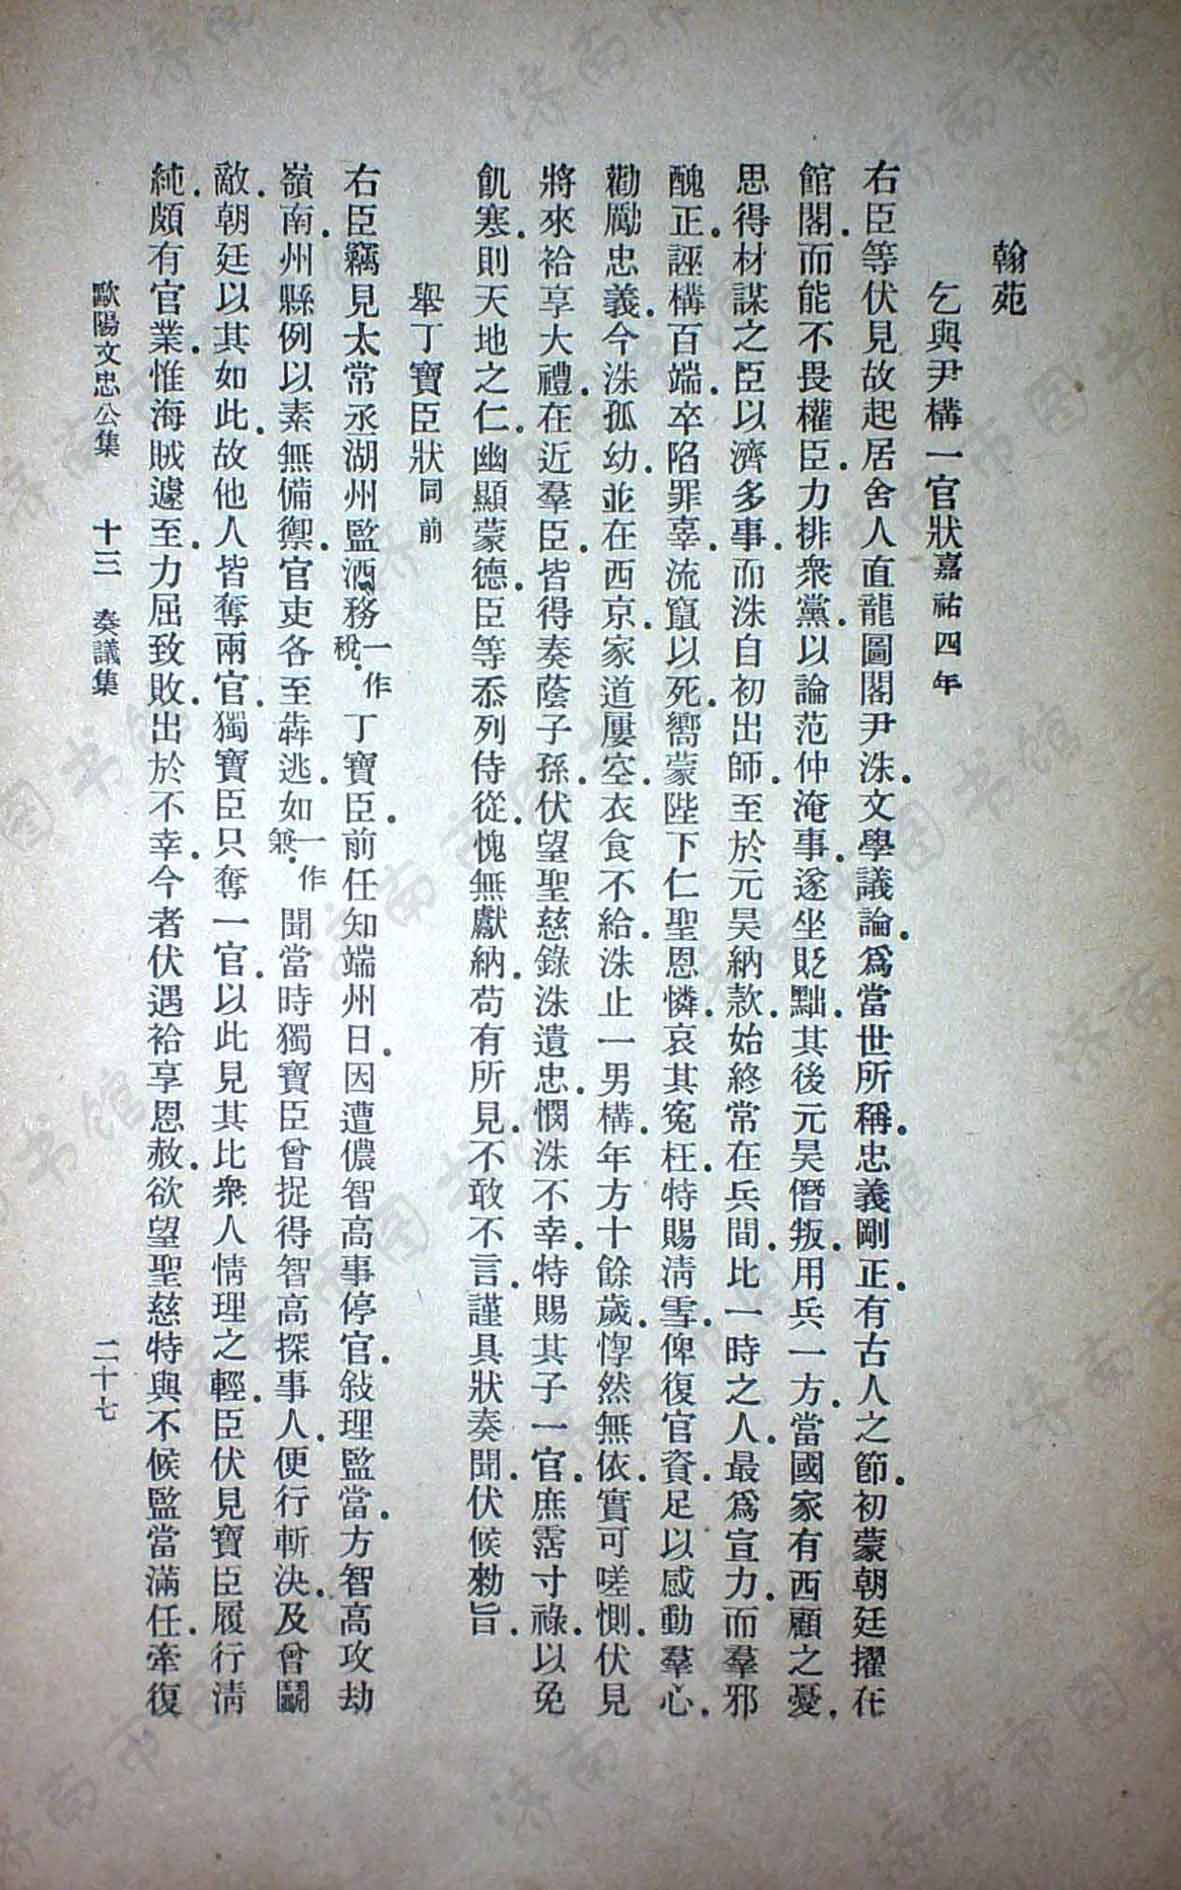 翰苑
乞與尹構一官狀嘉祐四年
右臣等伏見故起居舍人直龍圖閣尹洙.文學議論.爲當世所稱.忠義剛正.有古人之節.初蒙朝廷擢在
館閣.而能不畏權臣.力排衆黨.以論范仲淹事.遂坐貶黜.其後元昊僭叛.用兵一方.當國家有西顧之憂.
思得材謀之臣以濟多事.而洙自初出師.至於元昊納款.始終常在兵間.比一時之人.最爲宣力.而羣邪
醜正.誣構百端.卒陷罪辜.流竄以死.嚮蒙陛下仁聖恩憐.哀其寃枉.特賜淸雪.俾復官資.足以感動羣心.
勸勵忠義.今洙孤幼.並在西京.家道屢空.衣食不給.洙止一男構.年方十餘歲.惸然無依.實可嗟惻.伏見
將來祫享大禮.在近羣臣.皆得奏蔭子孫.伏望聖慈錄洙遺忠.憫洙不幸.特賜其子一官.庶霑寸祿.以免
飢寒.則天地之仁.幽顯蒙德.臣等忝列侍從.愧無獻納.苟有所見.不敢不言.謹具狀奏聞.伏候勑旨.
舉丁寶臣狀同前
右臣竊見太常丞湖州監酒務一作稅.丁寶臣.前任知端州日.因遭儂智高事停官.敍理監當.方智高攻劫
嶺南.州縣例以素無備禦.官吏各至犇逃.如一作兼.聞當時獨寶臣曾捉得智高探事人.便行斬決.及曾鬭
敵.朝廷以其如此.故他人皆奪兩官.獨寶臣只奪一官.以此見其比衆人情理之輕.臣伏見寶臣履行淸
純.頗有官業.惟海賊遽至.力屈致敗.出於不幸.今者伏遇祫享恩赦.欲望聖慈特與不候監當滿任.牽復
歐陽文忠公集 十三 奏議集 二十七